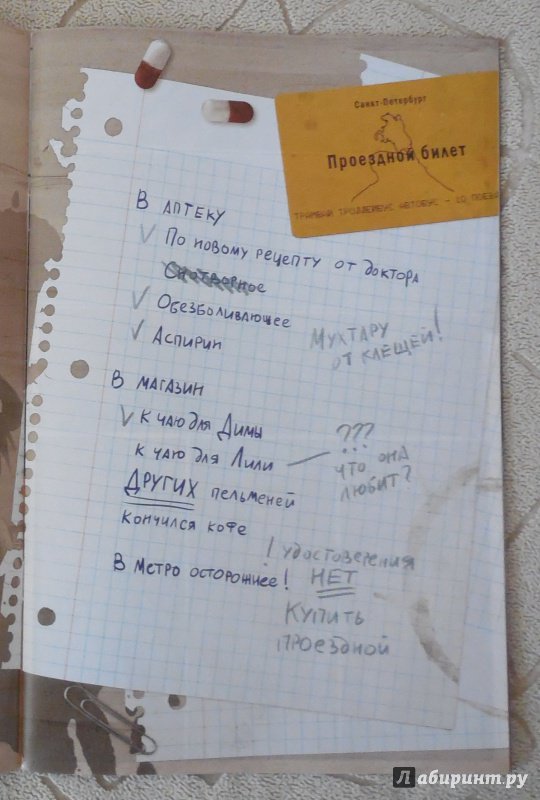 Санкт-Петербург
Проездной билет
ТРАМВАЙ ТРОЛЛЕЙБУС АВТОБУС - 10 ПОЕЗД
В АПТЕКУ
По новому рецепту от доктора
Снотворное
Обезболивающее
Аспирин
Мухтару
от клещей!
В магазин
к чаю для Димы
к чаю для Лили — ???
...
что она
любит?
Других пельменей
Кончился кофе
В метро осторожнее!
! Удостоверения
НЕТ
Купить
проездной
Лабиринт.ру